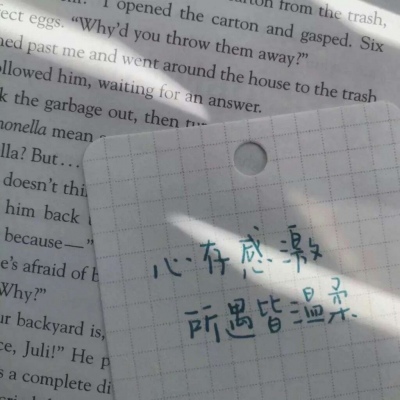 I opened the carton and gasped. Six
ect eggs. "Why'd you throw them away?"
ed past me and went around the house to the trash
ollowed him, waiting for an answer.
k the garbage out, then
monella mean
lla? But . . .
doesn't thi
him back
because—"
e's afraid of
Why?"
ur backyard is,
ce, Juli!" He p
s a complete di
心存感激
所遇皆温柔